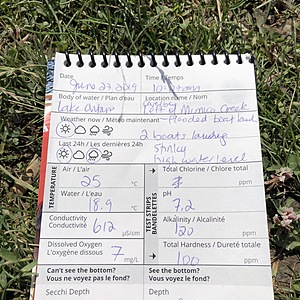 Date Time / Temps
June 27 2019 10: am
Body of water / Plan d'eau Location name / Nom
Lake Ontario Port of Mimico Creek
Weather now / Météo maintenant - flooded boat launch
2 boats
Last 24h / Les dernières 24h
high water level
TEMPERATURE
Air / L'air
25 °C
Water / L'eau
18.9 °C
Conductivity
Conductivité 612 µS/cm
Dissolved Oxygen
L'oxygène dissous 7 mg/L
TEST STRIPS
BANDELETTES
Total Chlorine / Chlore total
pH
7.2
Alkalinity / Alcalinité
120
Total Hardness / Dureté totale
100
Can't see the bottom?
Vous ne voyez pas le fond?
Secchi Depth
Can see the bottom?
Vous voyez le fond?
Depth